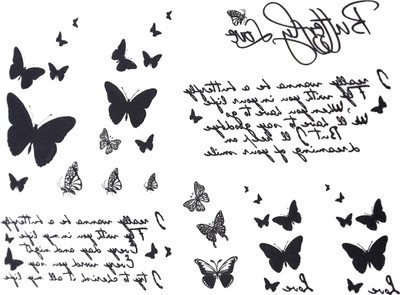 Butterfly
Love
I really wanna be a butterfly
Fly with you in your life
When you love to go
We'll love to say goodbye
But I'll keep on
dreaming of your smile
I really wanna be a butterfly
Fly with you in my life
Every day and night
Every word you say
I try to blind it all my life
love
love